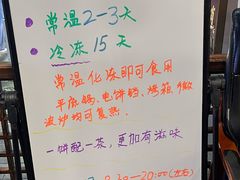 常温2-3天
冷冻15天
常温化冻即可食用
平底锅、电饼铛、烤箱、微
波炉均可复热.
一饼配一茶,更加有滋味
8:30-20:00(左右)